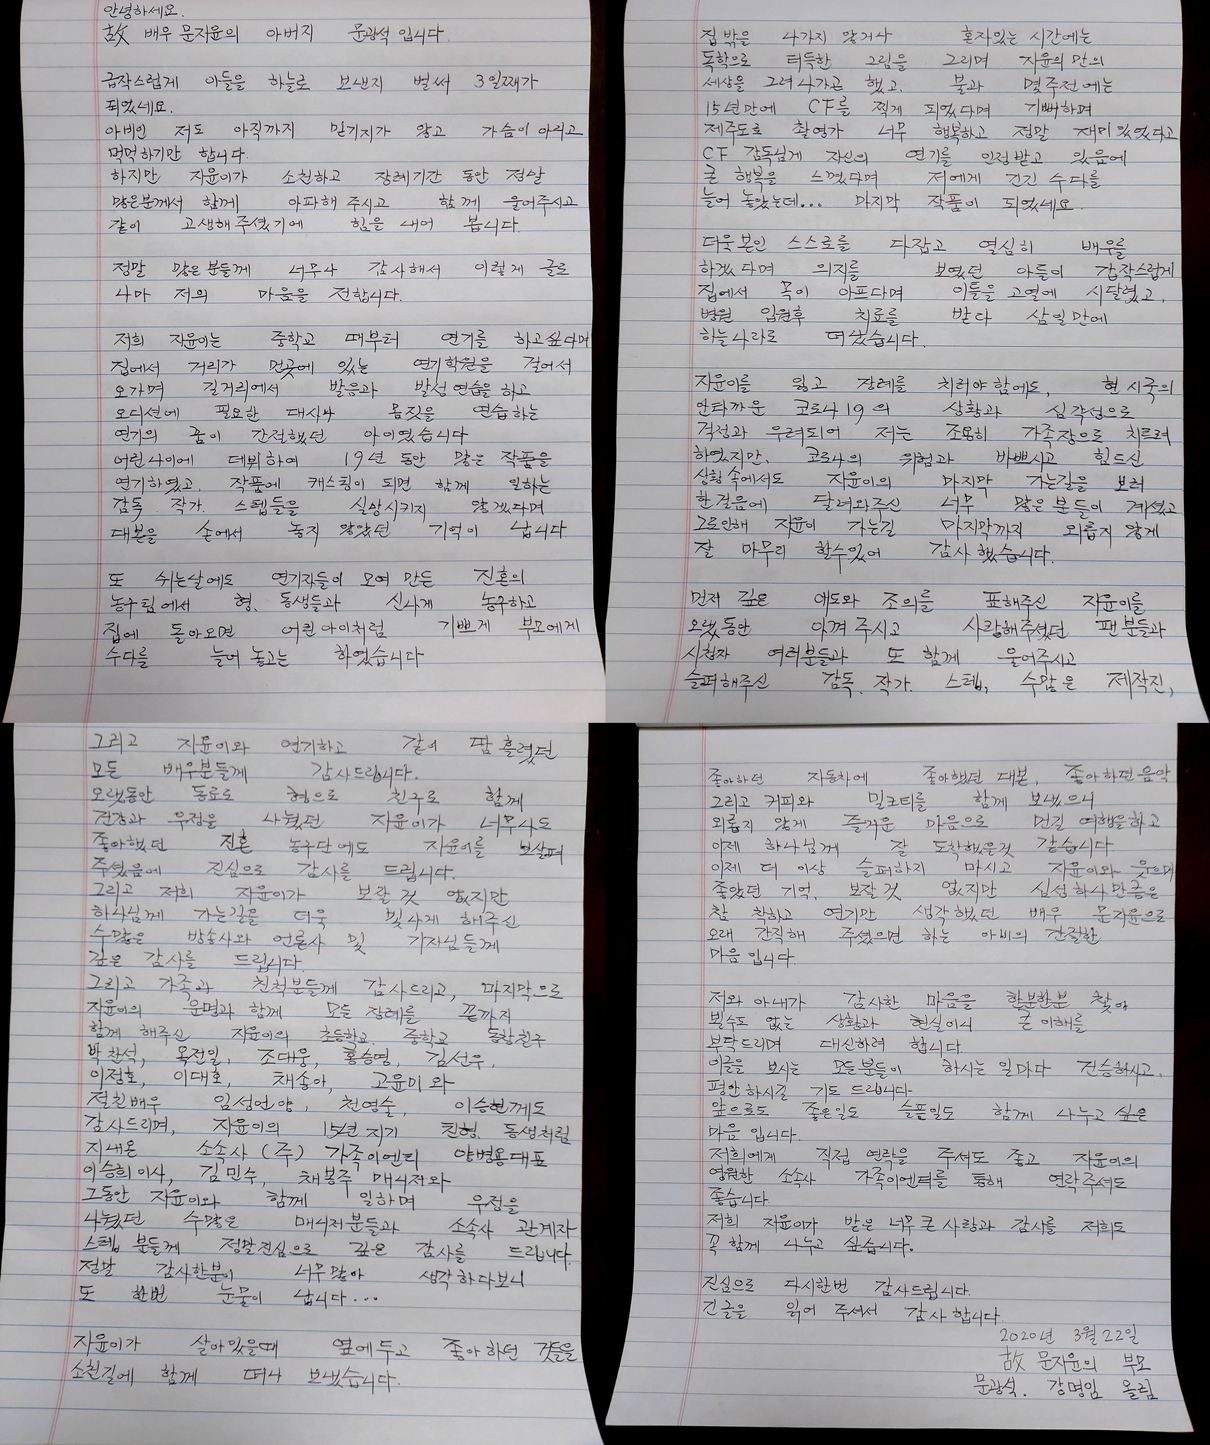 안녕하세요.
故 배우 문지윤의 아버지 문광석 입니다.
급작스럽게 아들을 하늘로 보낸지 벌써 3일째가
되었네요.
아비인 저도 아직까지 믿기지가 않고 가슴이 아리고
먹먹하기만 합니다.
하지만 지윤이가 소천하고 장례기간 동안 정말
많은분께서 함께 아파해 주시고 함께 울어주시고
같이 고생해 주셨기에 힘을 내어 봅니다.
정말 많은 분들께 너무나 감사해서 이렇게 글로
나마 저의 마음을 전합니다.
저희 지윤이는 중학교 때부터 연기를 하고싶다며
집에서 거리가 먼곳에 있는 연기학원을 걸어서
오가며 길거리에서 발음과 발성연습을 하고
오디션에 필요한 대사나 몸짓을 연습하는
연기의 꿈이 간절했던 아이였습니다
어린나이에 데뷔하여 19년 동안 많은 작품을
연기하였고. 작품에 캐스팅이 되면 함께 일하는
감독 작가. 스텝들을 실망시키지 않겠다며
대본을 손에서 놓지 않았던 기억이 납니다.
또 쉬는날에도 연기자들이 모여 만든 진혼의
농구팀에서 형, 동생들과 신나게 농구하고
집에 돌아오면 어린아이처럼 기쁘게 부모에게
수다를 늘어 놓고는 하였습니다
집 밖을 나가지 않거나 혼자있는 시간에는
독학으로 터득한 그림을 그리며 지윤이 만의
세상을 그려 나가곤 했고. 불과 몇주전에는
15년만에 CF를 찍게 되었다며 기뻐하며
제주도로 촬영가 너무 행복하고 정말 재미있었다고
CF 감독님께 자신의 연기를 인정받고 있음에
큰 행복을 느꼈다며 저에게 긴긴 수다를
늘어 놓았는데... 마지막 작품이 되었네요.
더욱 본인 스스로를 다잡고 열심히 배우를
하겠다며 의지를 보였던 아들이 갑작스럽게
집에서 목이 아프다며 이틀을 고열에 시달렸고,
병원 입원후 치료를 받다 삼일만에
하늘나라로 떠났습니다.
지윤이를 잃고 장례를 치러야 함에도, 현 시국의
안타까운 코로나 19 의 상황과 심각성으로
걱정과 우려되어 저는 조용히 가족장으로 치르려
하였지만, 코로나의 위험과 바쁘시고 힘드신
상황 속에서도 지윤이의 마지막 가는길을 보러
한걸음에 달려와주신 너무 많은 분들이 계셨고
그로인해 지윤이 가는길 마지막까지 외롭지 않게
잘 마무리 할수있어 감사 했습니다.
먼저 깊은 애도와 조의를 표해주신 지윤이를
오랫동안 아껴 주시고 사랑해주셨던 팬 분들과
시청자 여러분들과 또 함께 울어주시고
슬퍼해주신 감독. 작가. 스텝, 수많은 제작진,
그리고 지윤이와 연기하고 같이 땀 흘렸던
모든 배우분들께 감사드립니다.
오랫동안 동료로 형으로 친구로 함께
건강과 우정을 나눴던 지윤이가 너무나도
좋아했던 진혼 농구단에도 지윤이를 보살펴
주셨음에 진심으로 감사를 드립니다.
그리고 저희 지윤이가 보잘 것 없지만
하나님께 가는길을 더욱 빛나게 해주신
수많은 방송사와 언론사 및 기자님들께
깊은 감사를 드립니다.
그리고 가족과 친척분들께 감사드리고, 마지막으로
지윤이의 운명과 함께 모든 장례를 끝까지
함께 해주신 지윤이의 초등학교. 중학교 동창친구
박찬석, 옥전일, 조대웅, 홍승영, 김선우,
이정호, 이대호, 채송아, 고윤미 와
절친배우 임성언양, 천영술, 이승현께도
감사드리며, 지윤이의 15년 지기 친형. 동생처럼
지내온 소속사 (주) 가족이엔티 양병용대표
이승희이사, 김민수, 채봉주 매니저와
그동안 지윤이와 함께 일하며 우정을
나눴던 수많은 매니저분들과 소속사 관계자
스텝 분들께 정말진심으로 깊은 감사를 드립니다.
정말 감사한분이 너무많아 생각하다보니
또 한번 눈물이 납니다...
지윤이가 살아있을때 옆에 두고 좋아하던 것들을
소천길에 함께 떠나 보냈습니다.
좋아하던 자동차에 좋아했던 대본, 좋아하던음악
그리고 커피와 밀크티를 함께 보냈으니
외롭지 않게 즐거운 마음으로 먼길 여행을하고
이제 하나님께 잘 도착했을것 같습니다
이제 더 이상 슬퍼하지 마시고 지윤이와 웃으며
좋았던 기억, 보잘것 없지만 심성하나만큼은
참 착하고 연기만 생각했던 배우 문지윤으로
오래 간직해 주셨으면 하는 아비의 간절한
마음 입니다.
저와 아내가 감사한 마음을 한분한분 찾아
뵐수도 없는 상황과 현실이니 큰 이해를
부탁드리며 대신하려 합니다.
이글을 보시는 모든분들이 하시는 일마다 건승하시고,
평안 하시길 기도 드립니다
앞으로도 좋은일도 슬픈일도 함께 나누고 싶은
마음 입니다.
저희에게 직접 연락을 주셔도 좋고 지윤이의
영원한 소속사 가족이엔티를 통해 연락주셔도
좋습니다
저희 지윤이가 받은 너무 큰 사랑과 감사를 저희도
꼭 함께 나누고 싶습니다.
진심으로 다시한번 감사드립니다.
긴글을 읽어 주셔서 감사합니다
2020년 3월 22일
故 문지윤의 부모
문광석. 강명임 올림